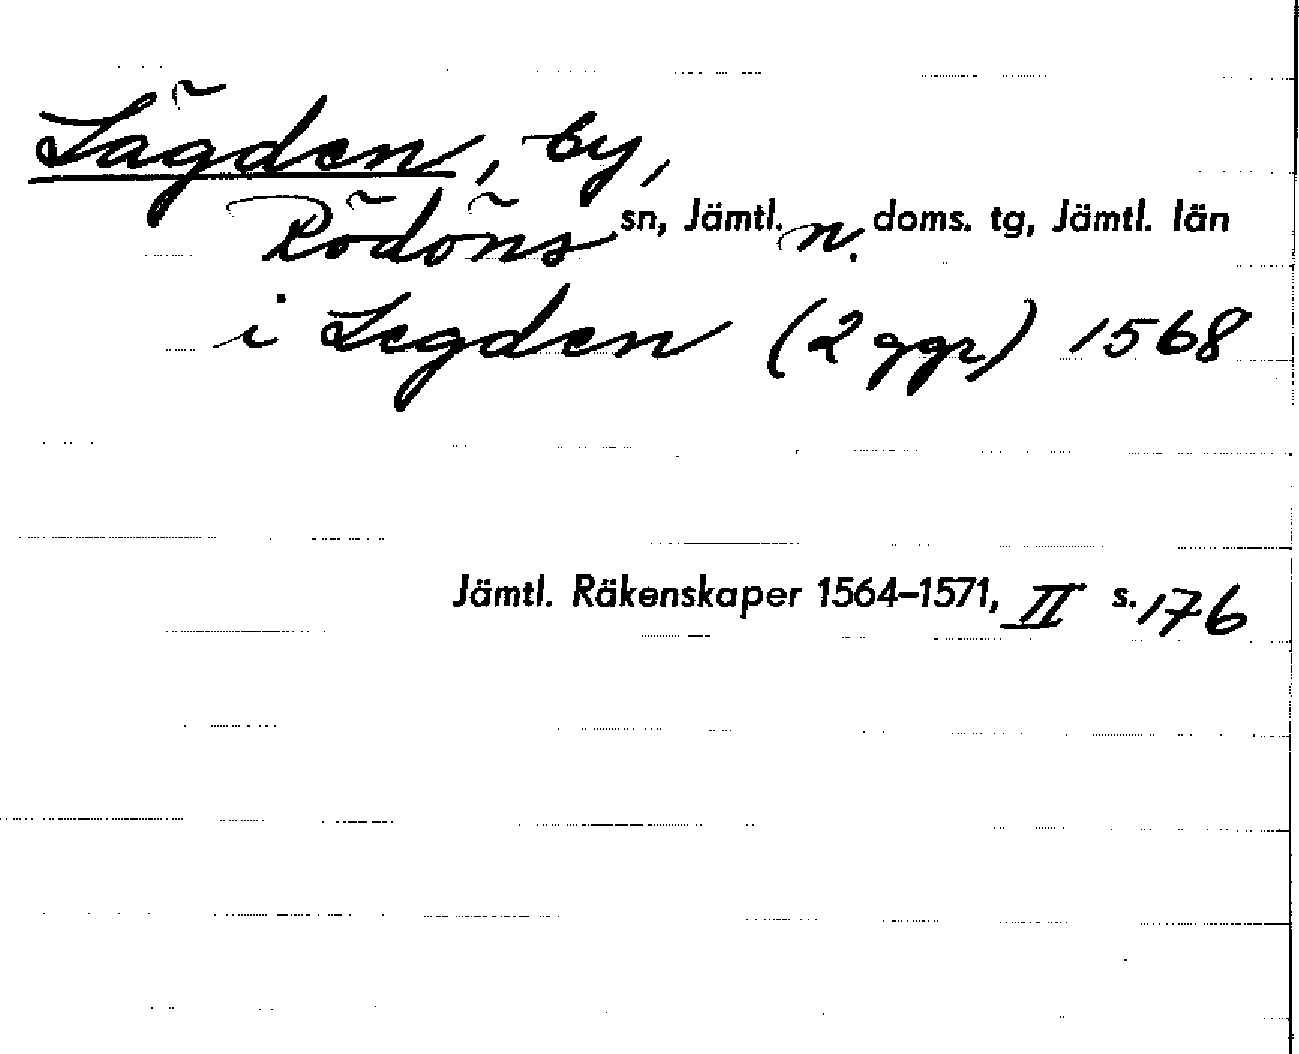 Lägden, by,
Rödöns sn, Jämtl. n. doms. tg, Jämtl. län
i Legden (2 ggr) 1568
Jämtl. Räkenskaper 1564–1571, II s. 176